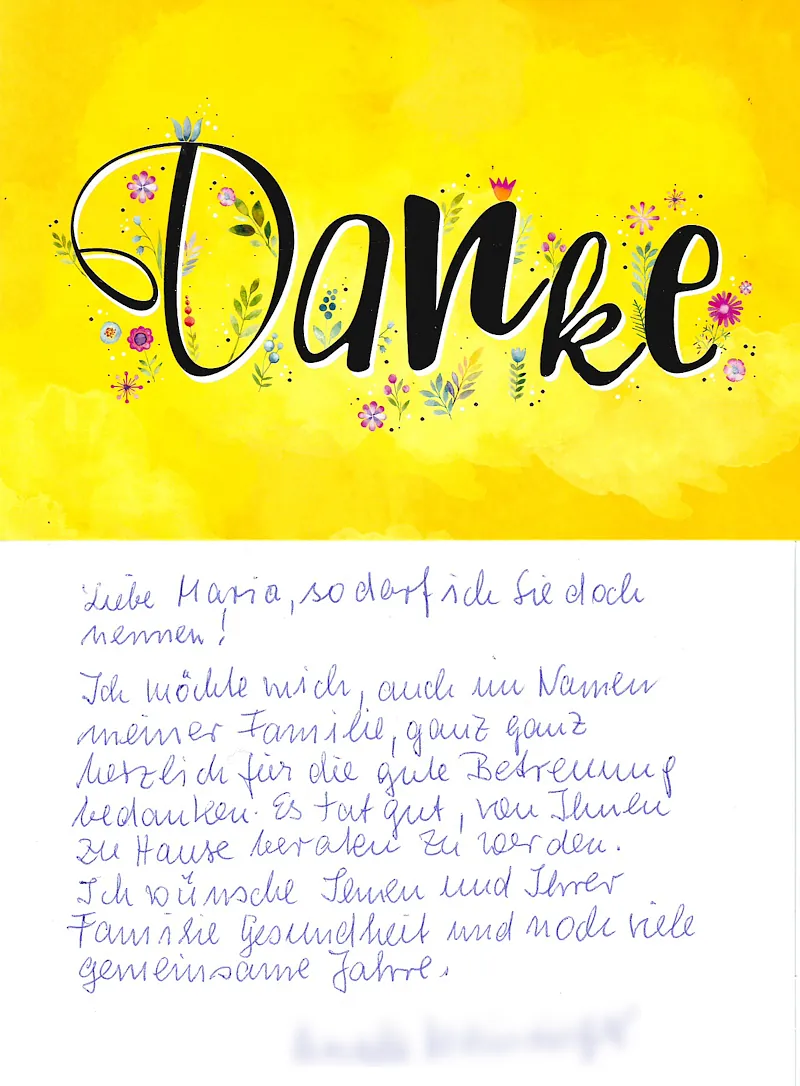 Danke
Liebe Maria, so darf ich Sie doch
nennen!
Ich möchte mich, auch im Namen
meiner Familie, ganz ganz
herzlich für die gute Betreuung
bedanken. Es tat gut, von Ihnen
zu Hause beraten zu werden.
Ich wünsche Ihnen und Ihrer
Familie Gesundheit und noch viele
gemeinsame Jahre.